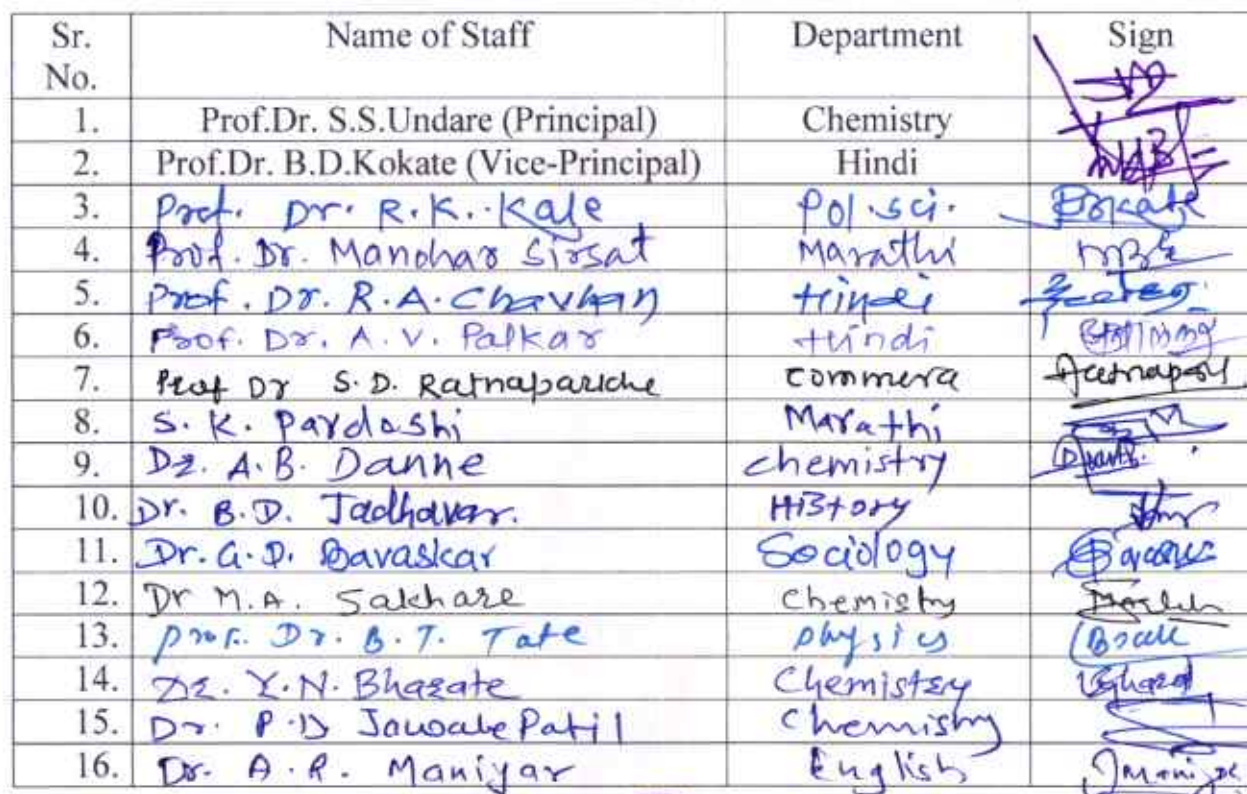 Sr. No. Name of Staff Department Sign
1. Prof.Dr. S.S.Undare (Principal) Chemistry
2. Prof.Dr. B.D.Kokate (Vice-Principal) Hindi
3. Prof. Dr. R.K. Kale Pol.sci.
4. Prof. Dr. Manohar Sirsat Marathi
5. Prof. Dr. R.A. Chavhan Hindi
6. Prof. Dr. A.V. Palkar Hindi
7. Prof Dr S.D. Ratnaparkhe
8. S.K. Pardeshi Marathi
9. Dr. A.B. Danne chemistry
10. Dr. B.D. Jadhavar. HiStory
11. Dr. G.D. Bavaskar Sociology
12. Dr M.A. Sakhare Chemistry
13. Prof. Dr. B.T. Tate physics
14. Dr. Y.N. Bharate Chemistry
15. Dr. P.D Jawale Patil Chemistry
16. Dr. A.R. Maniyar English